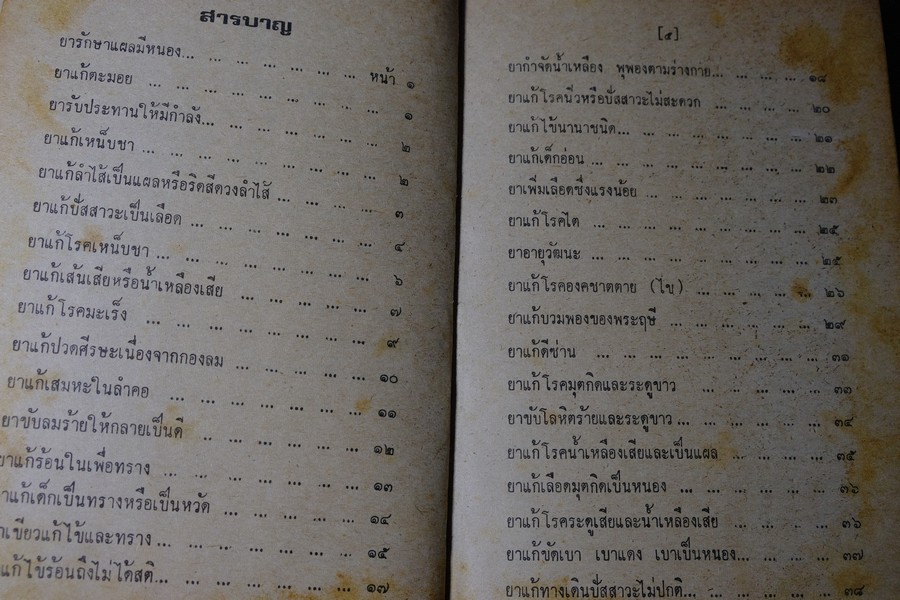 สารบาญ
ยารักษาแผลมีหนอง... ... ... ... ... ... ... หน้า ๑
ยาแก้ตะมอย ... ... ... ... ... ... ... ๑
ยารับประทานให้มีกำลัง... ... ... ... ... ... ๒
ยาแก้เหน็บชา ... ... ... ... ... ... ... ... ๒
ยาแก้ลำไส้เป็นแผลหรือริดสีดวงลำไส้ ... ... ... ... ๓
ยาแก้ปัสสาวะเป็นเลือด ... ... ... ... ... ... ... ๔
ยาแก้โรคเหน็บชา ... ... ... ... ... ... ... ๖
ยาแก้เส้นเสียหรือน้ำเหลืองเสีย ... ... ... ... ... ๗
ยาแก้โรคมะเร็ง ... ... ... ... ... ... ... ... ๙
ยาแก้ปวดศีรษะเนื่องจากกองลม ... ... ... ... ... ๑๐
ยาแก้เสมหะในลำคอ ... ... ... ... ... ... ... ๑๑
ยาขับลมร้ายให้กลายเป็นดี ... ... ... ... ... ... ๑๒
ยาแก้ร้อนในเพื่อทราง ... ... ... ... ... ... ... ๑๓
าแก้เด็กเป็นทรางหรือเป็นหวัด ... ... ... ... ... ๑๔
าเขียวแก้ไข้และทราง ... ... ... ... ... ... ... ๑๕
แก้ไข้ร้อนถึงไม่ได้สติ... ... ... ... ... ... ... ๑๗
[๕]
ยากำจัดน้ำเหลือง พุพองตามร่างกาย... ... ... ... ๑๘
ยาแก้โรคนิ่วหรือปัสสาวะไม่สะดวก ... ... ... ... ๒๐
ยาแก้ไข้นานาชนิด... ... ... ... ... ... ... ... ๒๑
ยาแก้เด็กอ่อน ... ... ... ... ... ... ... ... ๒๒
ยาเพิ่มเลือดซึ่งแรงน้อย ... ... ... ... ... ... ... ๒๓
ยาแก้โรคไต ... ... ... ... ... ... ... ... ๒๕
ยาอายุวัฒนะ ... ... ... ... ... ... ... ... ๒๕
ยาแก้โรคองคชาตตาย (ไข) ... ... ... ... ... ๒๖
ยาแก้บวมพองของพระฤษี ... ... ... ... ... ... ๒๙
ยาแก้ดีซ่าน ... ... ... ... ... ... ... ... ๓๑
ยาแก้โรคมุตกิดและระดูขาว ... ... ... ... ... ๓๓
ยาขับโลหิตร้ายและระดูขาว ... ... ... ... ... ... ๓๔
ยาแก้โรคน้ำเหลืองเสียและเป็นแผล ... ... ... ... ๓๕
ยาแก้เลือดมุตกิดเป็นหนอง ... ... ... ... ... ... ๓๖
ยาแก้โรคระดูเสียและน้ำเหลืองเสีย ... ... ... ... ๓๖
ยาแก้ขัดเบา เบาแดง เบาเป็นหนอง... ... ... ... ๓๗
ยาแก้ทางเดินปัสสาวะไม่ปกติ... ... ... ... ... ๓๘